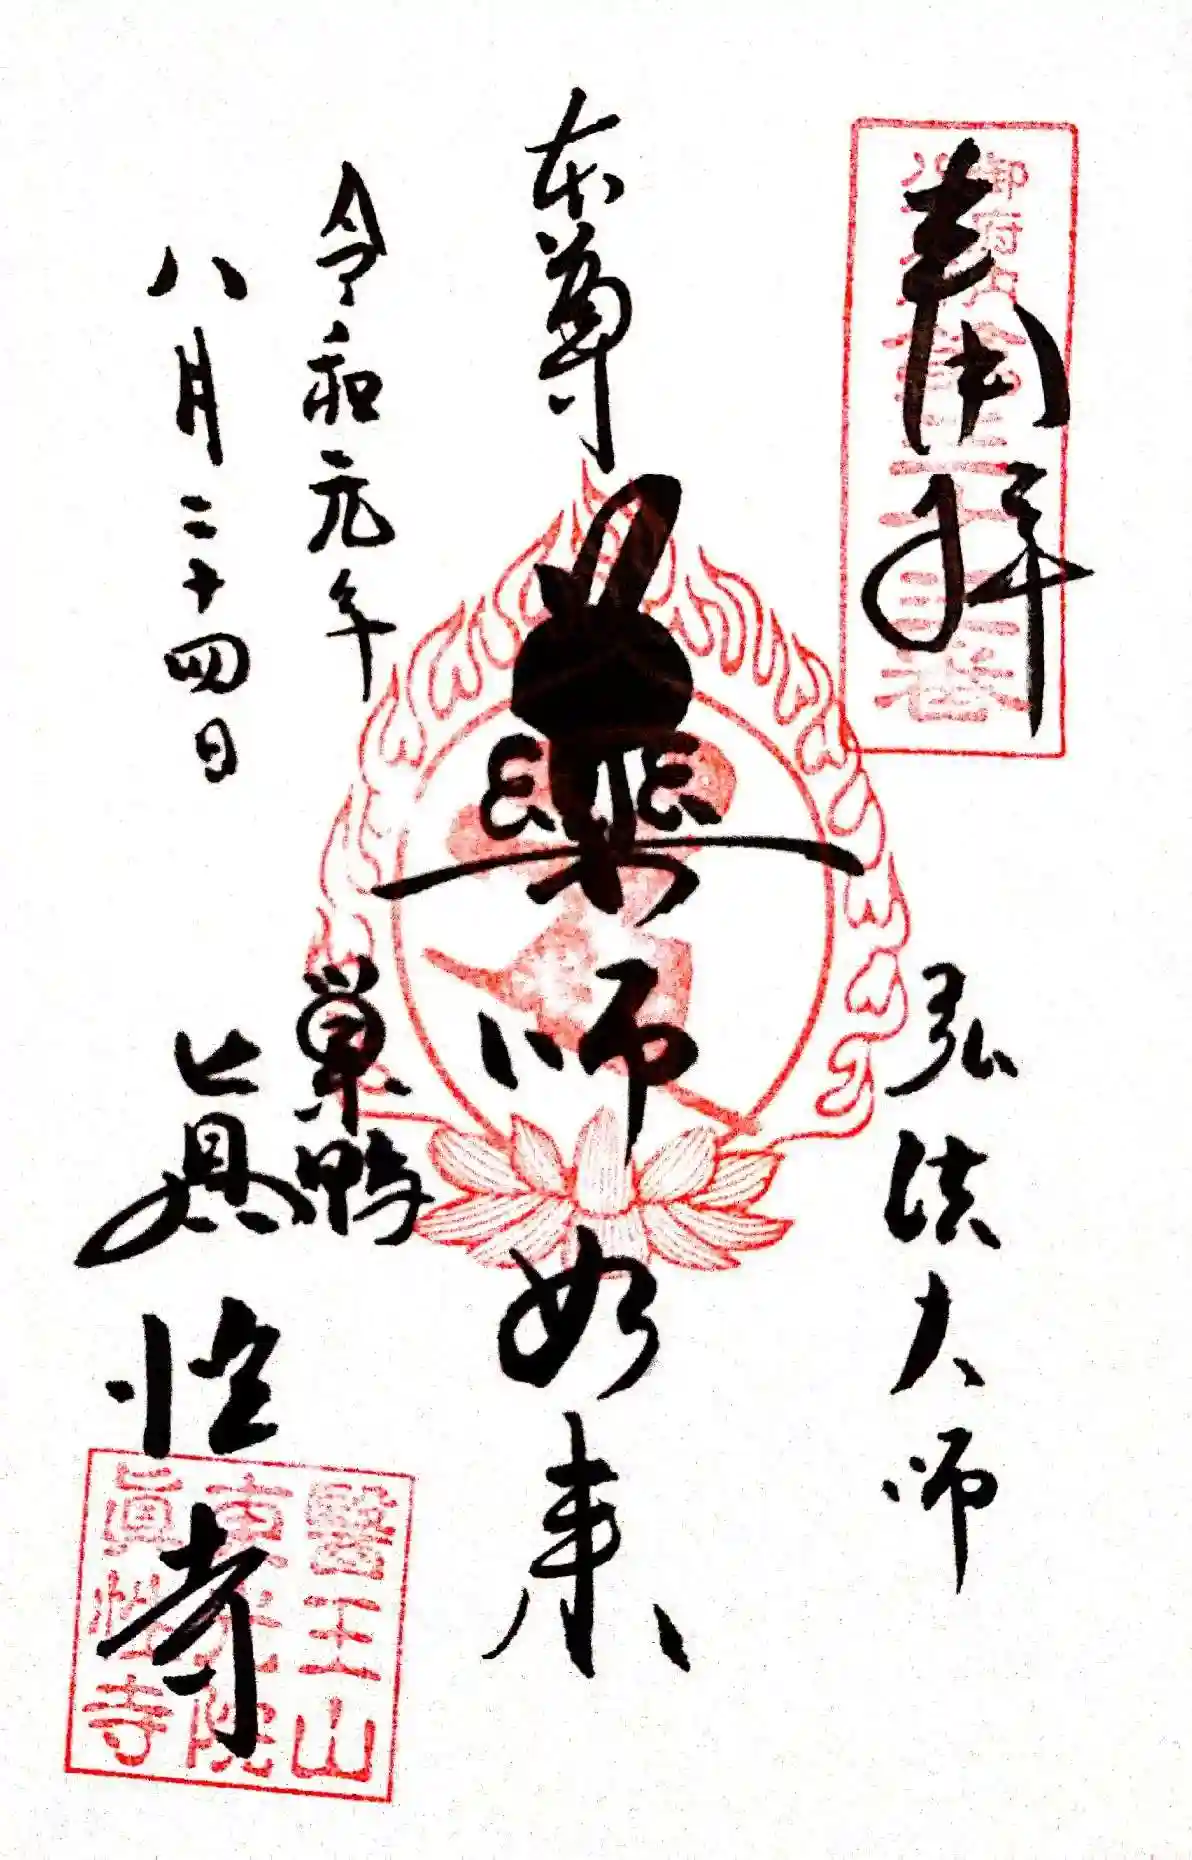 奉開拝
御府内八十八ヶ所第三十三番
弘法大師
本尊
薬師如来
令和元年
八月二十四日
巣鴨
真性寺
醫王山
東光院
眞性寺